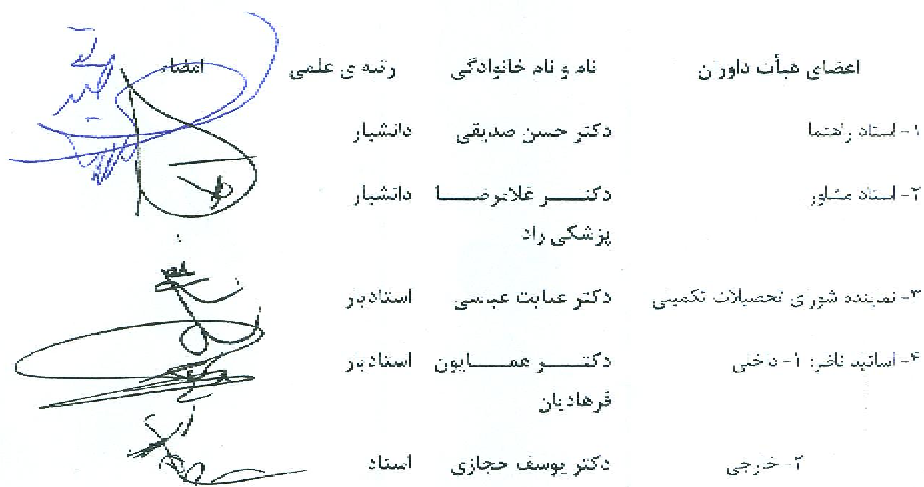 اعضای هیأت داوران نام و نام خانوادگی رتبه ی علمی امضاء
۱- استاد راهنما دکتر حسن صدیقی دانشیار
۲- استاد مشاور دکتر غلامرضا دانشیار
پزشکی راد
۳- نماینده شورای تحصیلات تکمیلی دکتر عنایت عباسی استادیار
۴- اساتید ناظر: ۱- داخلی دکتر همایون استادیار
فرهادیان
۲- خارجی دکتر یوسف حجازی استاد